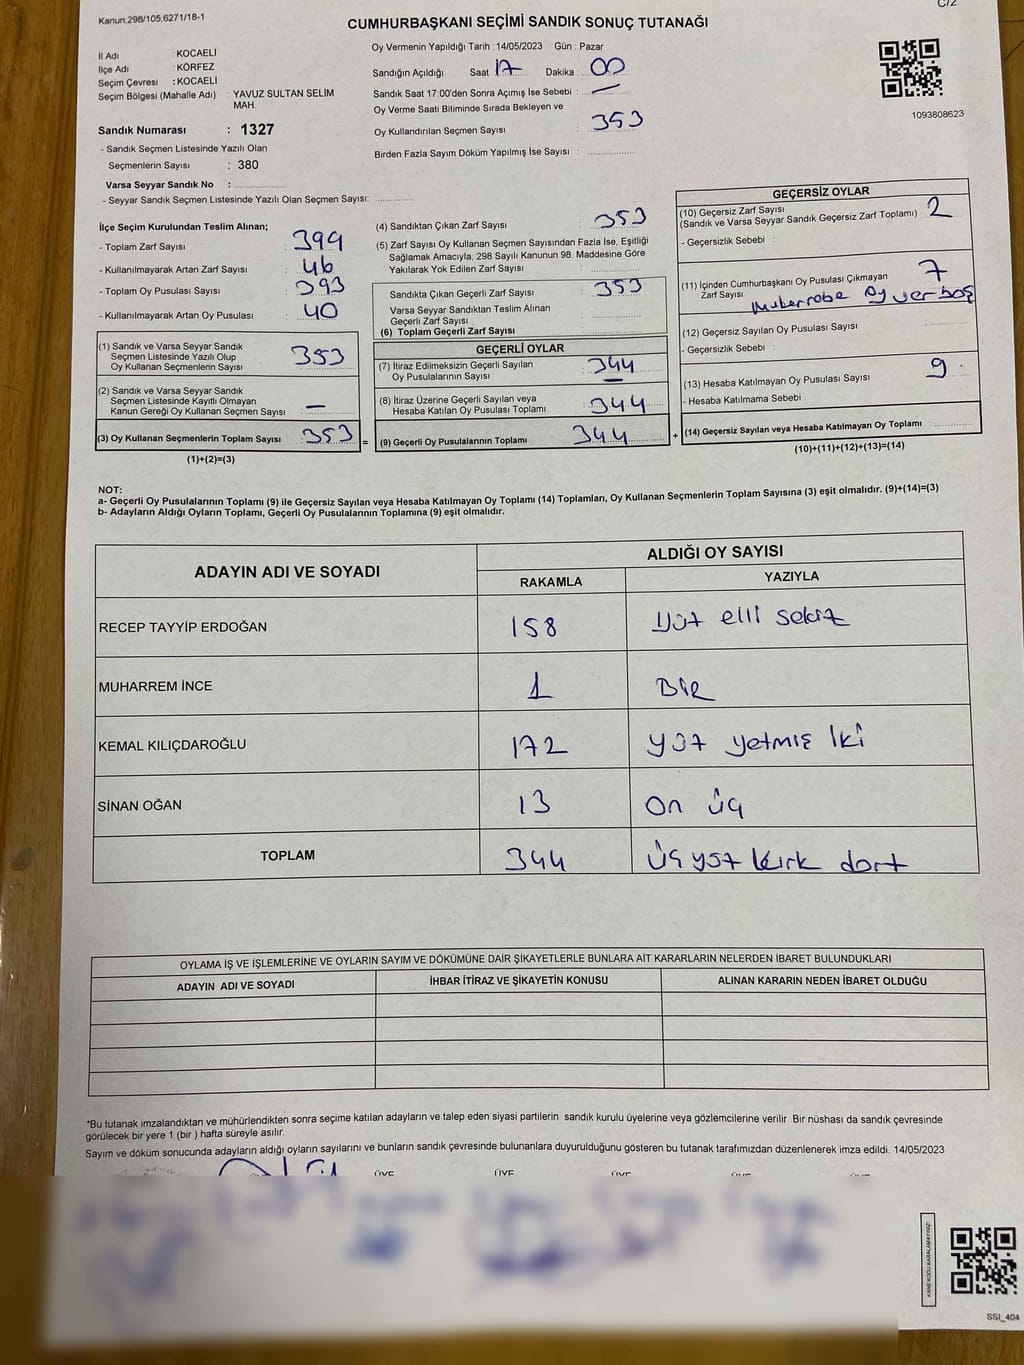 C/2
Kanun:298/105,6271/18-1
CUMHURBAŞKANI SEÇİMİ SANDIK SONUÇ TUTANAĞI
İl Adı : KOCAELİ
İlçe Adı : KÖRFEZ
Seçim Çevresi : KOCAELİ
Seçim Bölgesi (Mahalle Adı) : YAVUZ SULTAN SELİM MAH.
Sandık Numarası : 1327
- Sandık Seçmen Listesinde Yazılı Olan
Seçmenlerin Sayısı : 380
Varsa Seyyar Sandık No :
- Seyyar Sandık Seçmen Listesinde Yazılı Olan Seçmen Sayısı:
Oy Vermenin Yapıldığı Tarih :14/05/2023 Gün : Pazar
Sandığın Açıldığı Saat 17 Dakika : 00
Sandık Saat 17:00'den Sonra Açımış İse Sebebi : —
Oy Verme Saati Bitiminde Sırada Bekleyen ve
Oy Kullandırılan Seçmen Sayısı : 353
Birden Fazla Sayım Döküm Yapılmış İse Sayısı :
1093808623
İlçe Seçim Kurulundan Teslim Alınan;
- Toplam Zarf Sayısı : 399
- Kullanılmayarak Artan Zarf Sayısı : 46
- Toplam Oy Pusulası Sayısı : 393
- Kullanılmayarak Artan Oy Pusulası : 40
(1) Sandık ve Varsa Seyyar Sandık
Seçmen Listesinde Yazılı Olup
Oy Kullanan Seçmenlerin Sayısı : 353
(2) Sandık ve Varsa Seyyar Sandık
Seçmen Listesinde Kayıtlı Olmayan
Kanun Gereği Oy Kullanan Seçmen Sayısı : —
(3) Oy Kullanan Seçmenlerin Toplam Sayısı : 353 =
(1)+(2)=(3)
(4) Sandıktan Çıkan Zarf Sayısı : 353
(5) Zarf Sayısı Oy Kullanan Seçmen Sayısından Fazla İse, Eşitliği
Sağlamak Amacıyla, 298 Sayılı Kanunun 98. Maddesine Göre
Yakılarak Yok Edilen Zarf Sayısı :
Sandıkta Çıkan Geçerli Zarf Sayısı : 353
Varsa Seyyar Sandıktan Teslim Alınan
Geçerli Zarf Sayısı :
(6) Toplam Geçerli Zarf Sayısı
GEÇERLİ OYLAR
(7) İtiraz Edilmeksizin Geçerli Sayılan
Oy Pusulalarının Sayısı : 344
(8) İtiraz Üzerine Geçerli Sayılan veya
Hesaba Katılan Oy Pusulası Toplamı : 344
(9) Geçerli Oy Pusulalarının Toplamı 344 +
GEÇERSİZ OYLAR
(10) Geçersiz Zarf Sayısı
(Sandık ve Varsa Seyyar Sandık Geçersiz Zarf Toplamı) : 2
- Geçersizlik Sebebi :
(11) İçinden Cumhurbaşkanı Oy Pusulası Çıkmayan
Zarf Sayısı 7
Oy yer boş
(12) Geçersiz Sayılan Oy Pusulası Sayısı
- Geçersizlik Sebebi :
(13) Hesaba Katılmayan Oy Pusulası Sayısı : 9
- Hesaba Katılmama Sebebi
(14) Geçersiz Sayılan veya Hesaba Katılmayan Oy Toplamı :
(10)+(11)+(12)+(13)=(14)
NOT:
a- Geçerli Oy Pusulalarının Toplamı (9) ile Geçersiz Sayılan veya Hesaba Katılmayan Oy Toplamı (14) Toplamları, Oy Kullanan Seçmenlerin Toplam Sayısına (3) eşit olmalıdır. (9)+(14)=(3)
b- Adayların Aldığı Oyların Toplamı, Geçerli Oy Pusulalarının Toplamına (9) eşit olmalıdır.
ADAYIN ADI VE SOYADI
ALDIĞI OY SAYISI
RAKAMLA YAZIYLA
RECEP TAYYİP ERDOĞAN 158 Yüz elli sekiz
MUHARREM İNCE 1 BİR
KEMAL KILIÇDAROĞLU 172 yüz yetmiş İki
SİNAN OĞAN 13 On üç
TOPLAM 344 üç yüz kırk dört
OYLAMA İŞ VE İŞLEMLERİNE VE OYLARIN SAYIM VE DÖKÜMÜNE DAİR ŞİKAYETLERLE BUNLARA AİT KARARLARIN NELERDEN İBARET BULUNDUKLARI
ADAYIN ADI VE SOYADI İHBAR İTİRAZ VE ŞİKAYETİN KONUSU ALINAN KARARIN NEDEN İBARET OLDUĞU
*Bu tutanak imzalandıktan ve mühürlendikten sonra seçime katılan adayların ve talep eden siyasi partilerin sandık kurulu üyelerine veya gözlemcilerine verilir Bir nüshası da sandık çevresinde
görülecek bir yere 1 (bir ) hafta süreyle asılır.
Sayım ve döküm sonucunda adayların aldığı oyların sayılarını ve bunların sandık çevresinde bulunanlara duyurulduğunu gösteren bu tutanak tarafımızdan düzenlenerek imza edildi. 14/05/2023
ÜYE ÜYE ÜYE
KARE KODU KARALAMAYINIZ!
SSI_404